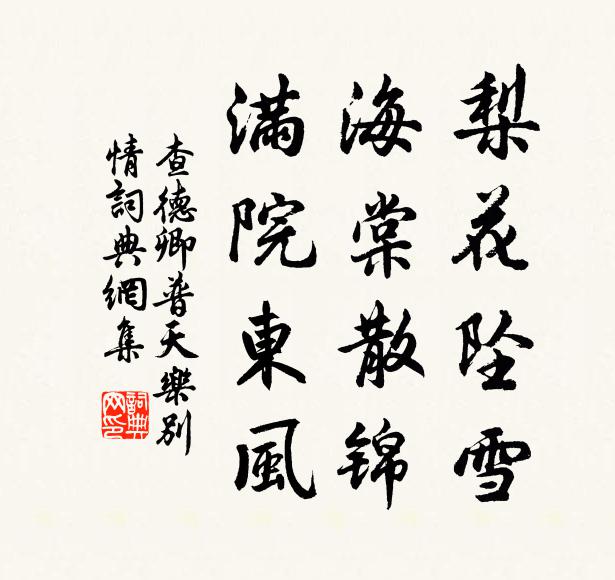 梨花坠雪
海棠散锦
满院東風
查德卿普天樂别
情詞典網集
詞典网印